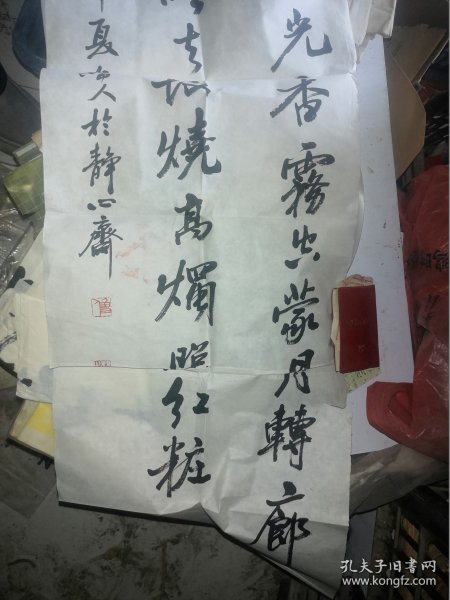 光香霧空蒙月轉廊
去故燒高燭照紅粧
夏 人於靜心齋
孔夫子旧书网
www.kongfz.com